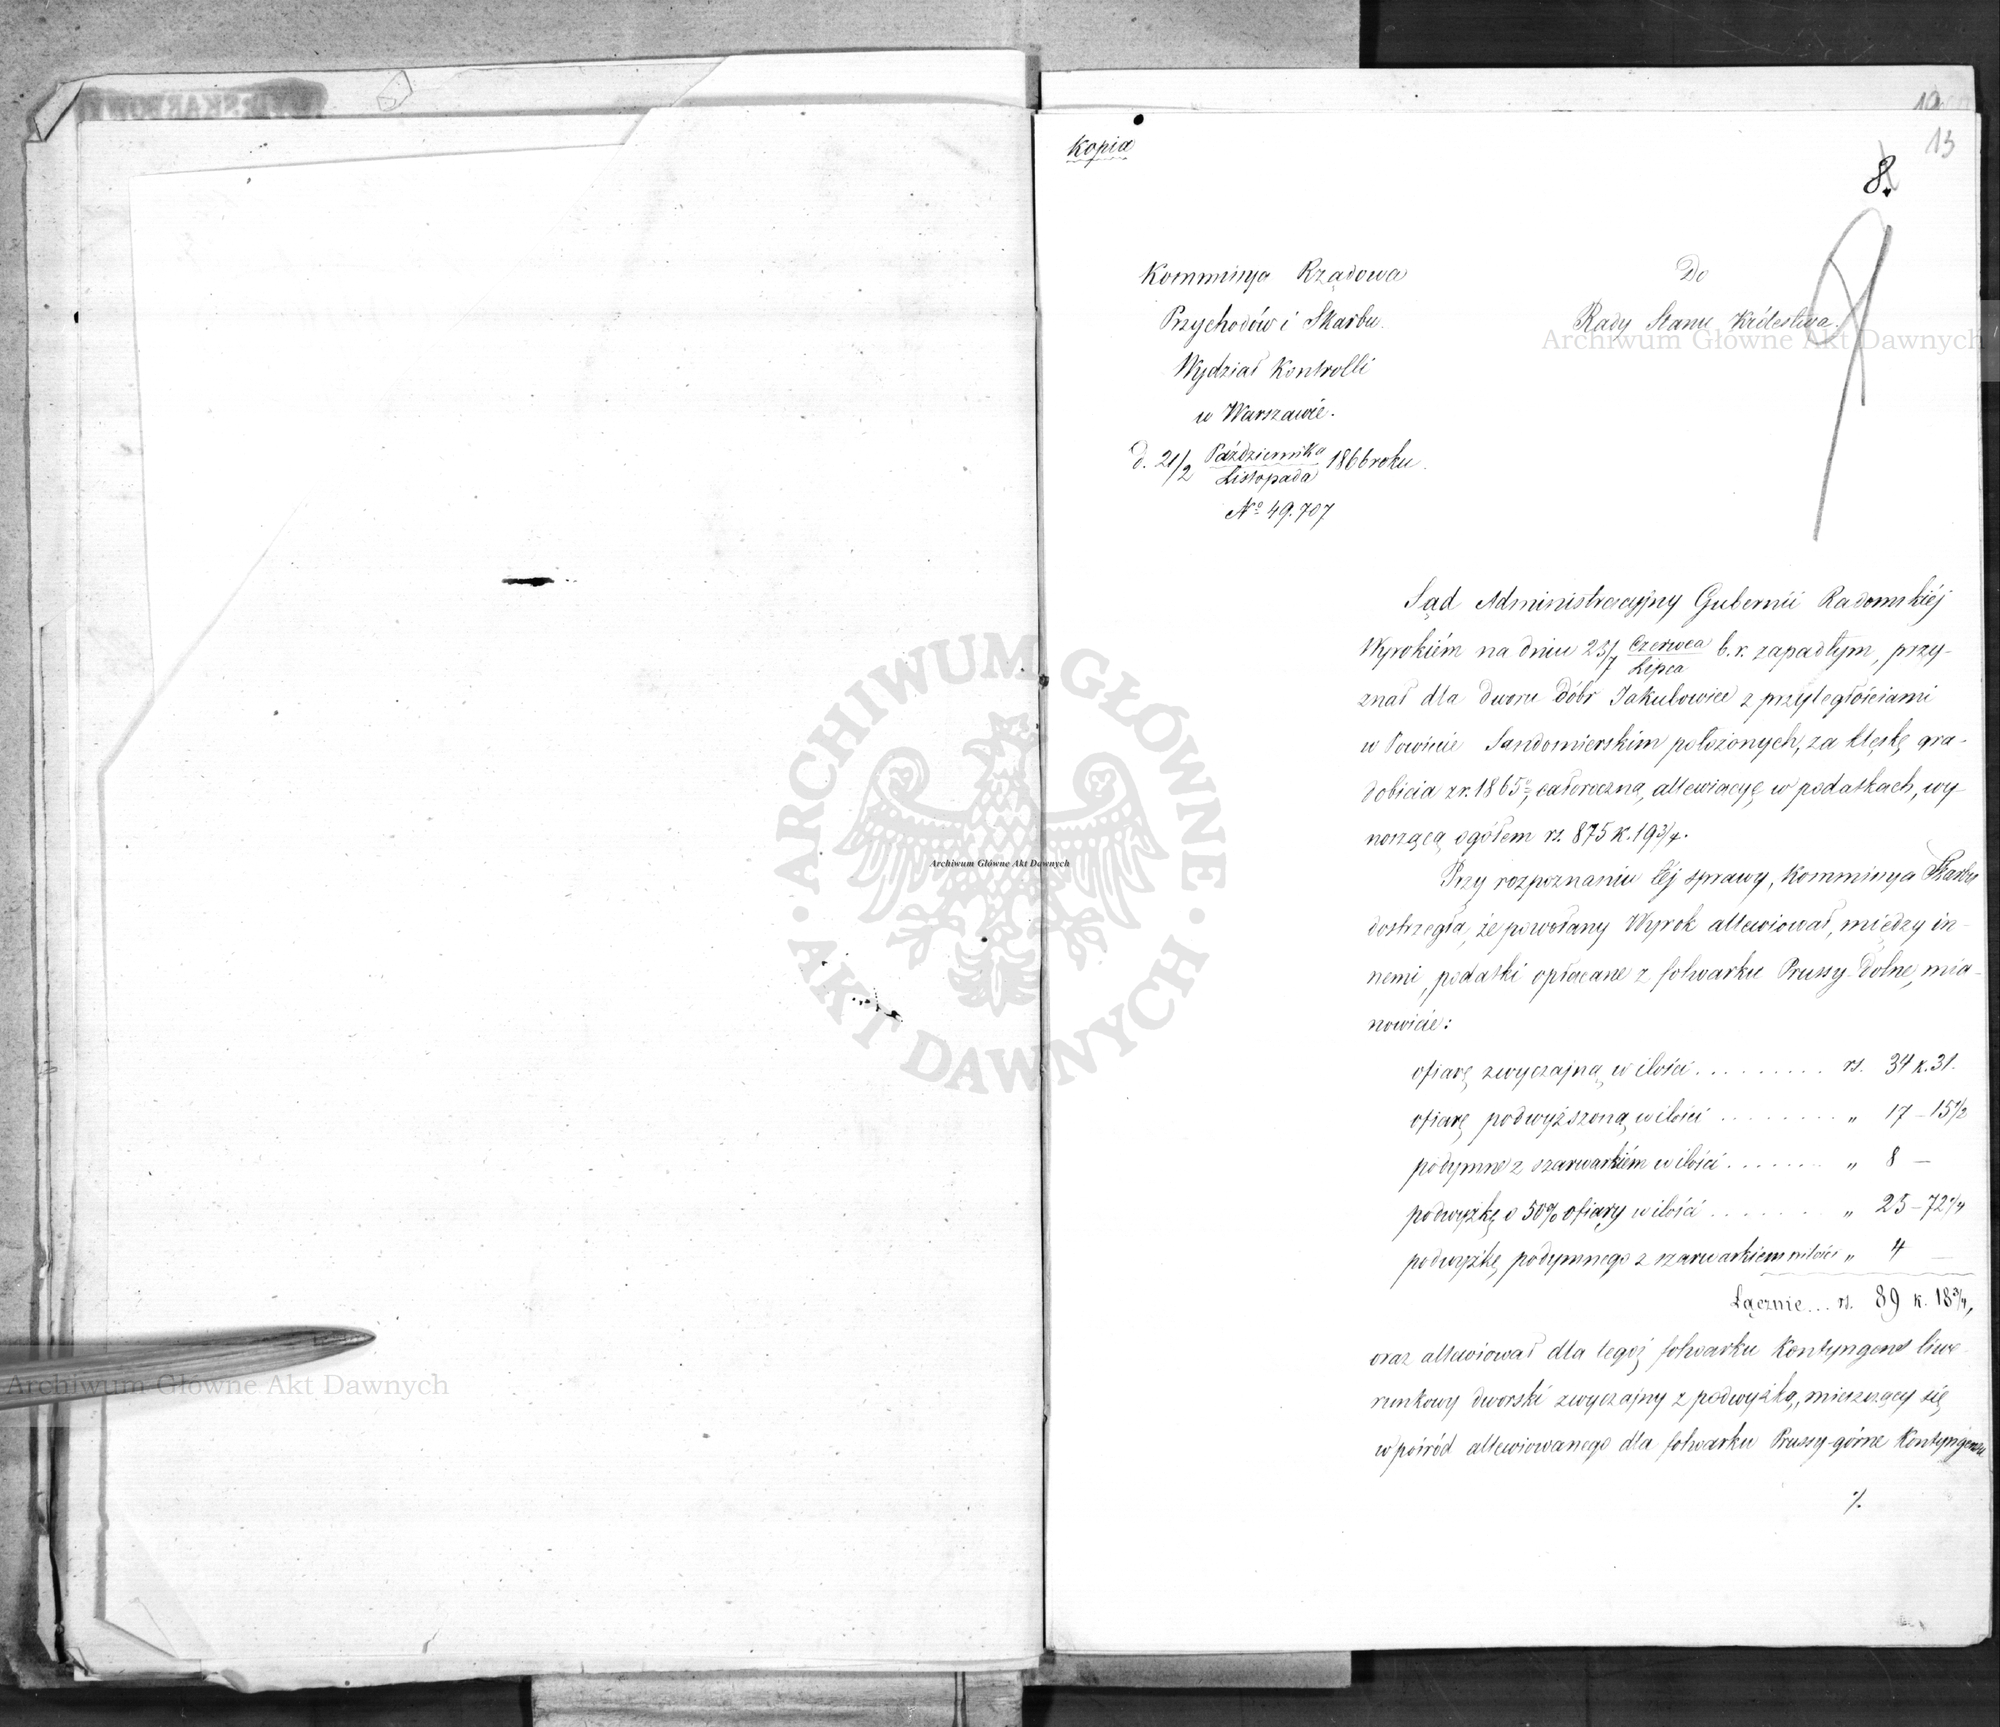 13
Kopia
8.
Kommissya Rządowa
Przychodów i Skarbu.
Wydział Kontrolli
w Warszawie.
d. 21/2 Października/Listopada 1866 roku.
№ 49.707
Do
Rady Stanu Królestwa.
Sąd Administracyjny Gubernii Radomskiéj
Wyrokiém na dniu 25/7 Czerwca/Lipca b.r. zapadłym, przy-
znał dla dworu dóbr Jakubowice z przyległościami
w Powiecie Sandomierskim położonych, za klęskę gra-
dobicia z r. 1865, całoroczną allewiacyę w podatkach, wy-
noszącą ogółem rs. 875 k. 19 3/4.
Przy rozpoznaniu téj sprawy, Kommissya Skarbu
dostrzegła, że powołany Wyrok allewiował, między in-
nemi, podatki opłacane z folwarku Prussy-Dolne, mia-
nowicie:
ofiarę zwyczajną w ilości . . . . . . . . . rs. 34 k. 31.
ofiarę podwyższoną w ilości . . . . . . . . „ 17 – 15 1/2
podymne z szarwarkiém w ilości . . . . . . . „ 8 –
podwyżkę o 50% ofiary w ilości . . . . . . . „ 25 – 72 1/4
podwyżkę podymnego z szarwarkiem w ilości „ 4 –
Łącznie... rs. 89 k. 18 3/4,
oraz allewiował dla tegoż folwarku Kontyngens liwe-
runkowy dworski zwyczajny z podwyżką, mieszczący się
wpośród allewiowanego dla folwarku Prussy-górne Kontyngensu
./.
Archiwum Główne Akt Dawnych
Archiwum Główne Akt Dawnych
Archiwum Główne Akt Dawnych
ARCHIWUM GŁÓWNE AKT DAWNYCH